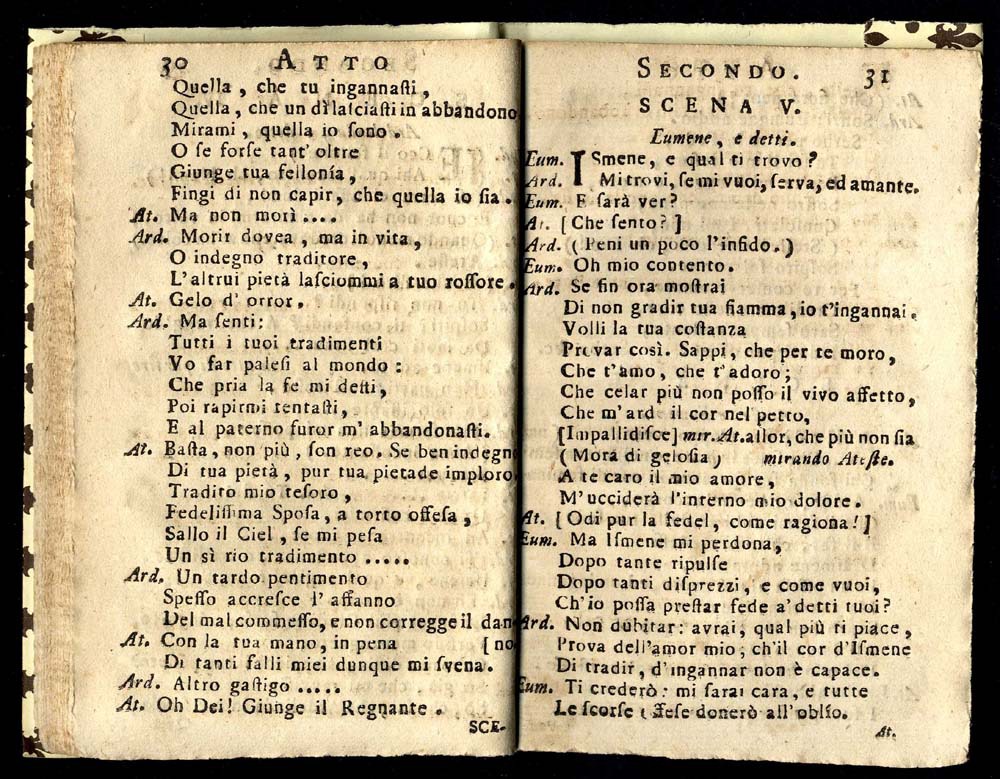 30 ATTO
Quella, che tu ingannaſti,
Quella, che un dì laſciaſti in abbandono
Mirami, quella io ſono.
O ſe forſe tant' oltre
Giunge tua fellonía,
Fingi di non capir, che quella io ſia.
At. Ma non morì ....
Ard. Morir dovea, ma in vita,
O indegno traditore,
L'altrui pietà laſciommi a tuo roſſore.
At. Gelo d' orror.
Ard. Ma ſenti:
Tutti i tuoi tradimenti
Vo far paleſi al mondo:
Che pria la fe mi deſti,
Poi rapirmi tentaſti,
E al paterno furor m' abbandonaſti.
At. Baſta, non più, ſon reo. Se ben indegn
Di tua pietà, pur tua pietade imploro
Tradito mio teſoro,
Fedeliſſima Spoſa, a torto offeſa,
Sallo il Ciel, ſe mi peſa
Un sì rio tradimento .....
Ard. Un tardo pentimento
Speſſo accreſce l' affanno
Del mal commeſſo, e non corregge il dan-
At. Con la tua mano, in pena [no
Di tanti falli miei dunque mi ſvena.
Ard. Altro gaſtigo .....
At. Oh Dei! Giunge il Regnante.
SCE-
SECONDO. 31
SCENA V.
Eumene, e detti.
Eum. ISmene, e qual ti trovo?
Ard. Mi trovi, ſe mi vuoi, ſerva, ed amante.
Eum. E ſarà ver?
At. [Che ſento?]
Ard. (Peni un poco l'infido.)
Eum. Oh mio contento.
Ard. Se fin ora moſtrai
Di non gradir tua fiamma, io t'ingannai.
Volli la tua coſtanza
Provar così. Sappi, che per te moro,
Che t'amo, che t'adoro;
Che celar più non poſſo il vivo affetto,
Che m'ard il cor nel petto,
[Impallidiſce] mir. At. allor, che più non ſia
(Mora di geloſia) mirando Ateſte.
A te caro il mio amore,
M'ucciderà l'interno mio dolore.
At. [Odi pur la fedel, come ragiona!]
Eum. Ma Iſmene mi perdona,
Dopo tante ripulſe
Dopo tanti diſprezzi, e come vuoi,
Ch'io poſſa preſtar fede a' detti tuoi?
Ard. Non dubitar: avrai, qual più ti piace,
Prova dell'amor mio; ch'il cor d'Iſmene
Di tradir, d'ingannar non è capace.
Eum. Ti crederò: mi ſarai cara, e tutte
Le ſcorſe donerò all'oblío.
At.